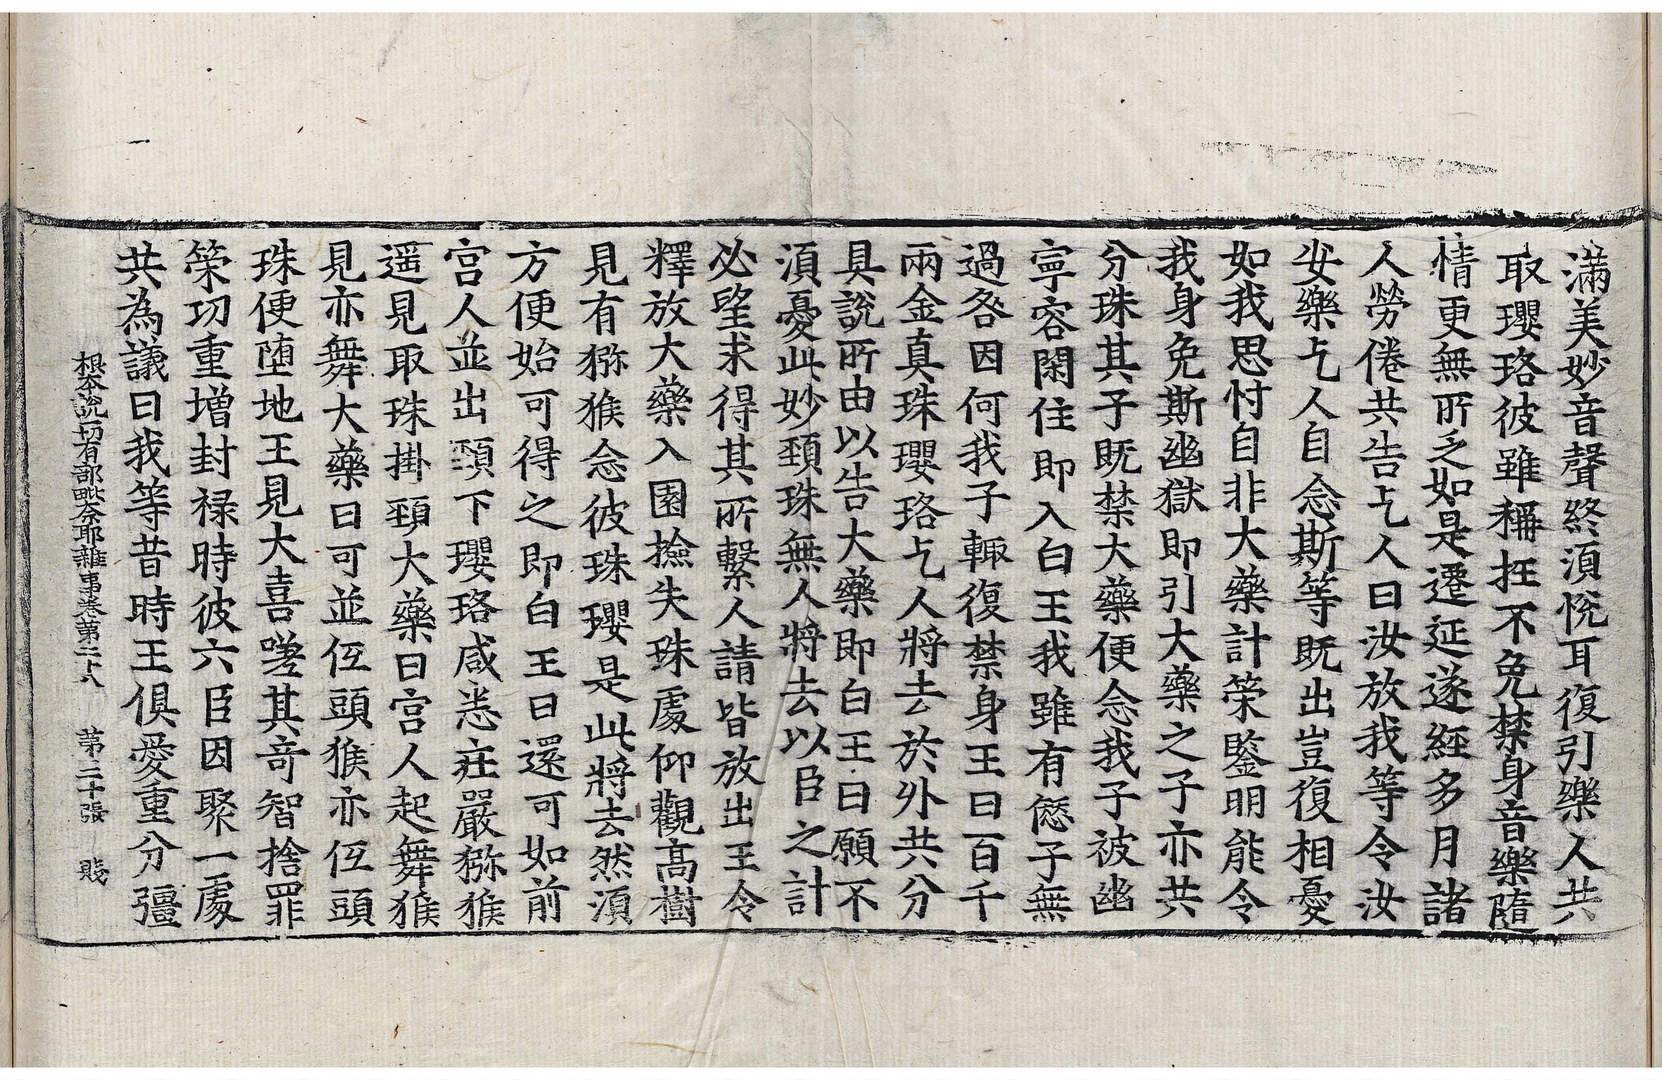 滿美妙音聲終湏恱耳復引樂人共
取瓔珞彼雖稱抂不免禁身音樂隨
情更無所乏如是遷延遂經多月諸
人勞倦共告乞人曰汝放我等令汝
安樂乞人自念斯等旣出豈復相憂
如我思忖自非大藥計筞鑒明能令
我身免斯幽獄即引大藥之子亦共
分珠其子旣禁大藥便念我子被幽
寜容閑住即入白王我雖有㥶子無
過咎因何我子輙復禁身王曰百千
兩金真珠瓔珞乞人將去於外共分
具說所由以告大藥即白王曰願不
湏憂此妙頚珠無人將去以臣之計
必望求得其所繫人請皆放出王令
釋放大藥入園撿失珠處仰觀高樹
見有猕猴念彼珠瓔是此將去然湏
方便始可得之即白王曰還可如前
宫人並出頚下瓔珞咸悉莊嚴猕猴
遥見取珠掛頚大藥曰宫人起舞猴
見亦舞大藥曰可並伍頭猴亦伍頭
珠便堕地王見大喜嗟其竒智捨罪
筞功重增封禄時彼六臣因聚一處
共為議曰我等昔時王俱愛重分彊
根本說一切有部毗奈耶雜事卷第二十八　第二十張　賤